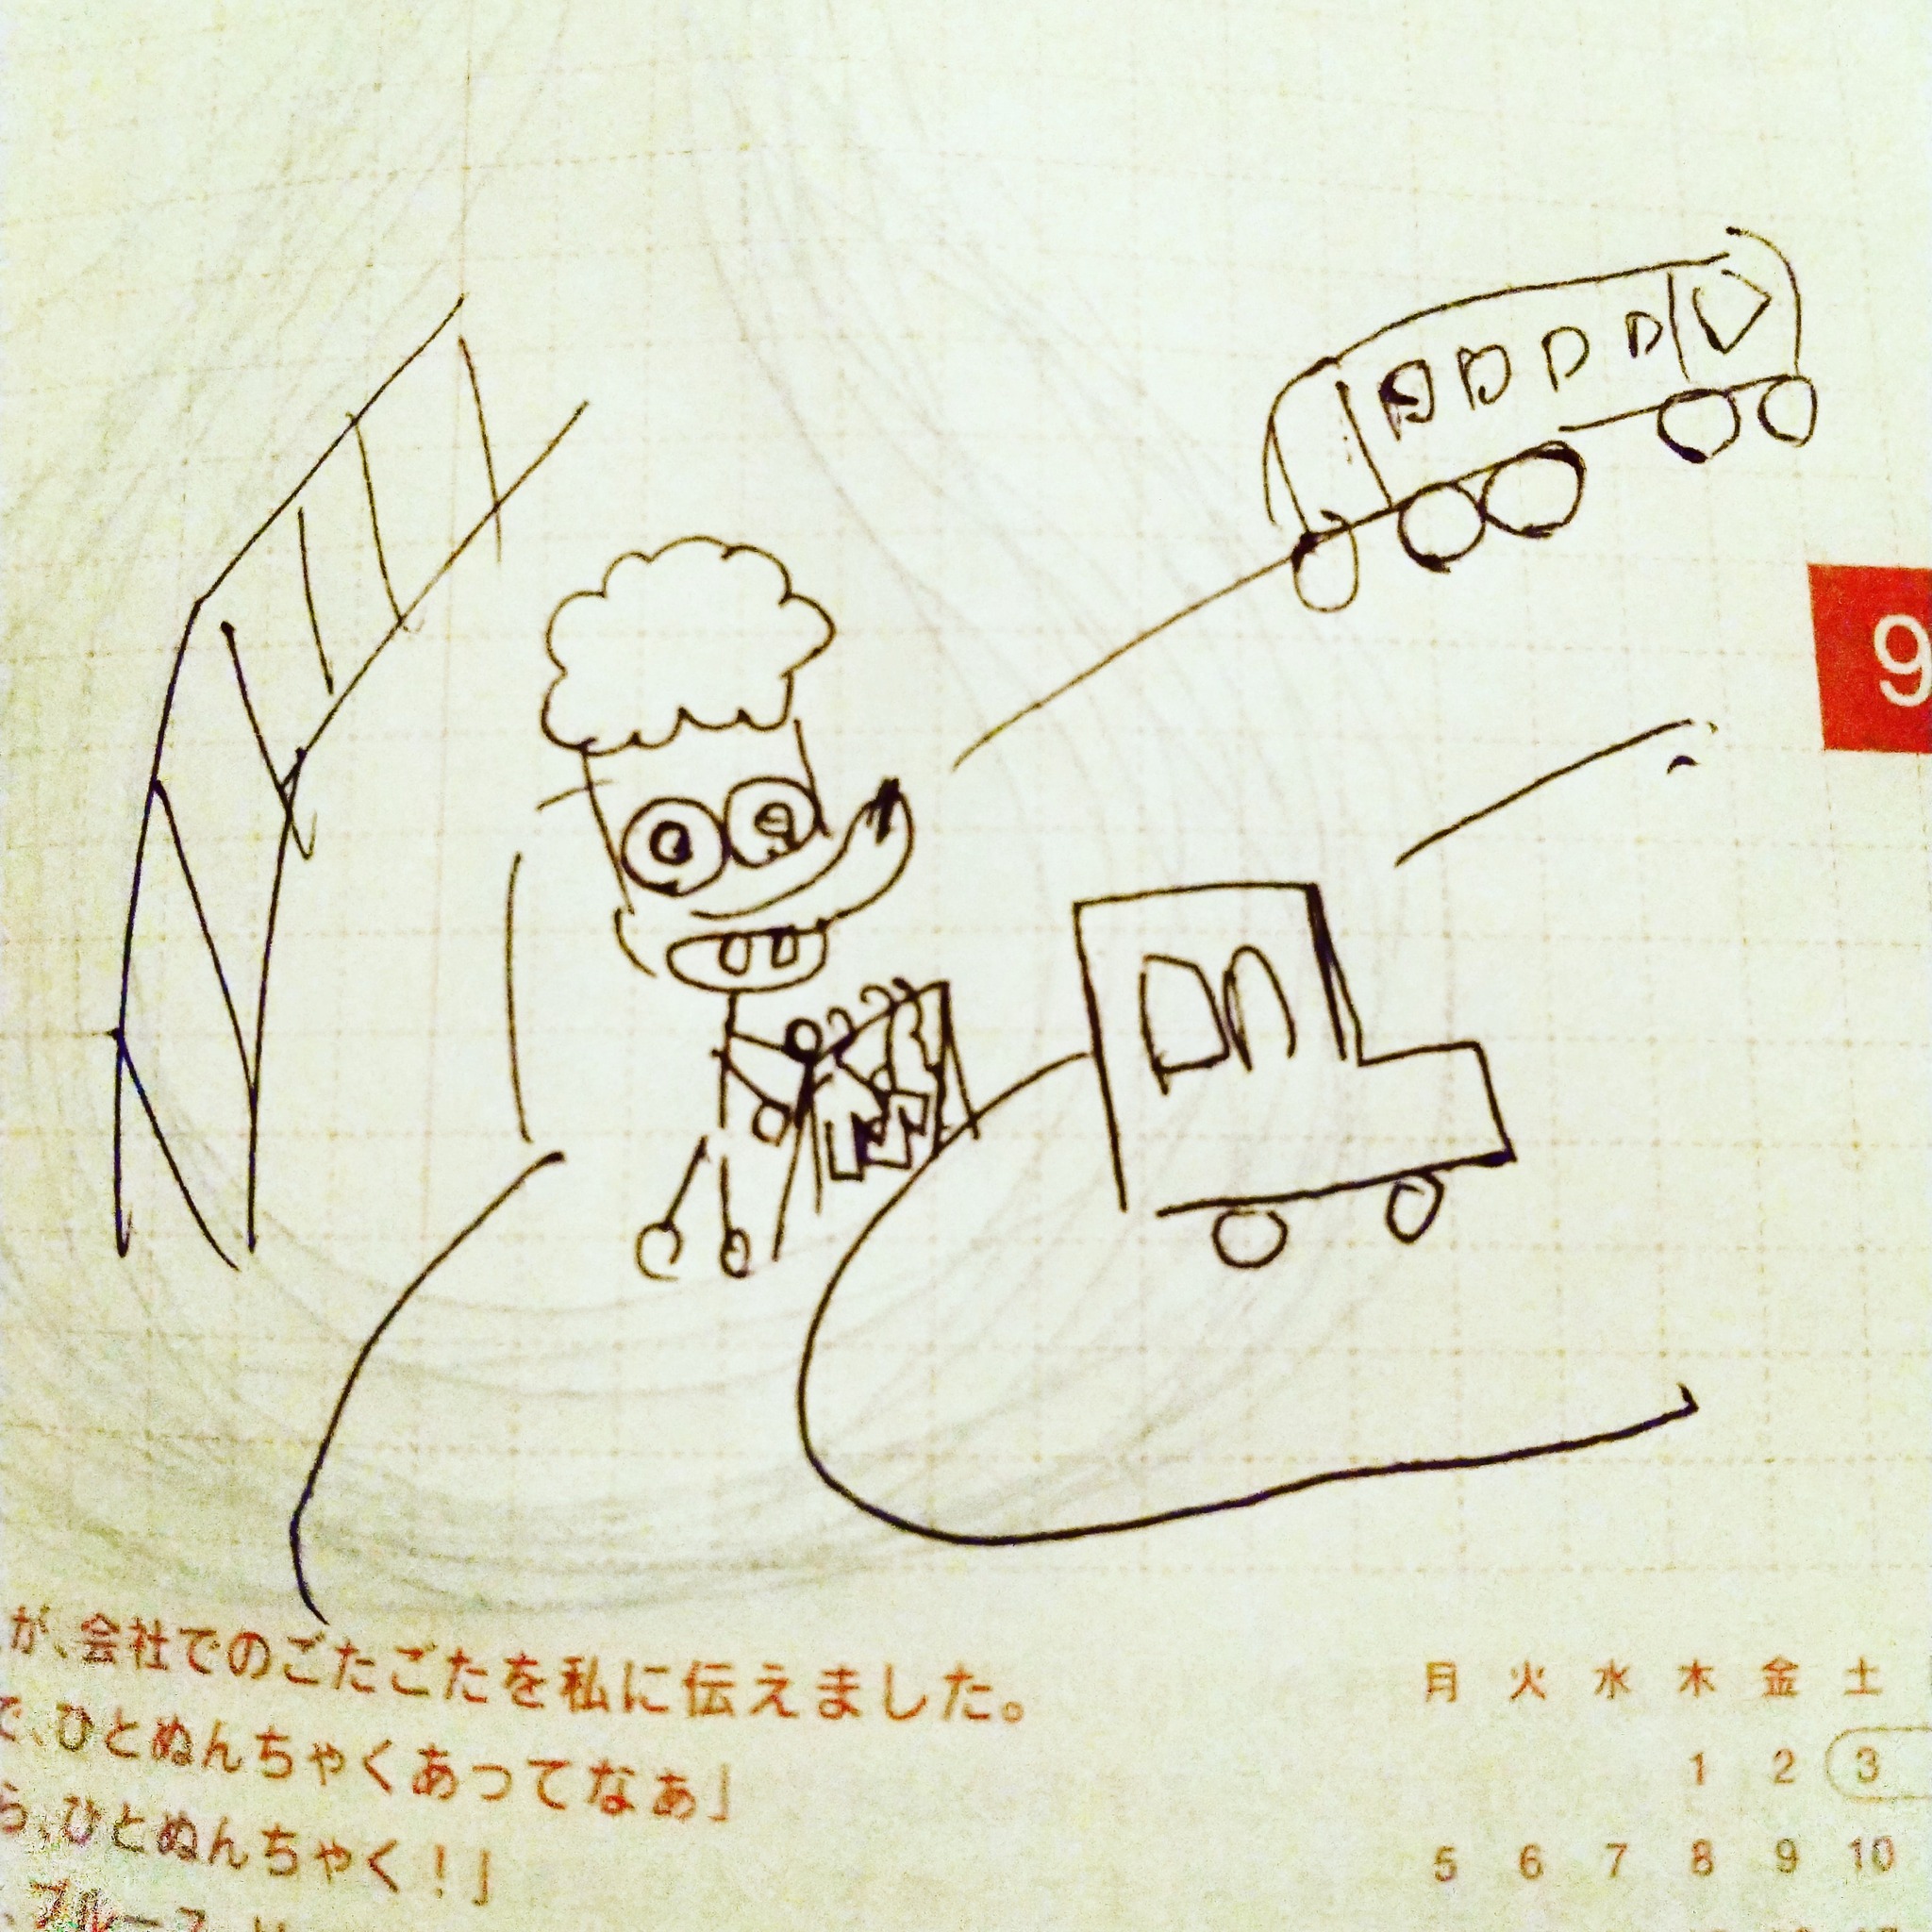 9
が、会社でのごたごたを私に伝えました。
で、ひとぬんちゃくあってなぁ」
ら、ひとぬんちゃく！」
月 火 水 木 金 土
1 2 3
5 6 7 8 9 10